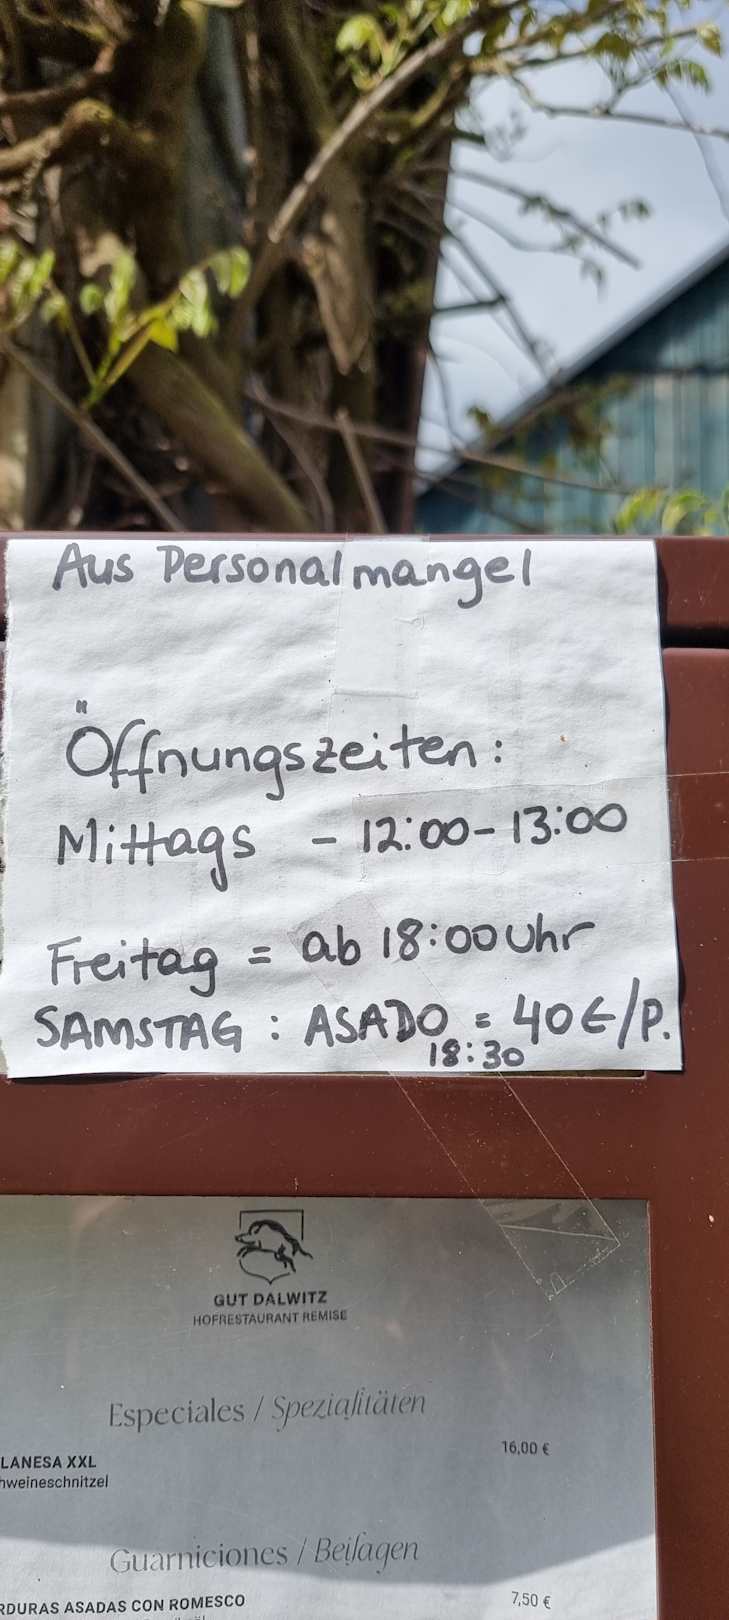 Aus Personalmangel
Öffnungszeiten:
Mittags - 12:00-13:00
Freitag = ab 18:00 Uhr
SAMSTAG : ASADO = 40€/P.
18:30
GUT DALWITZ
HOFRESTAURANT REMISE
Especiales / Spezialitäten
LANESA XXL 16,00 €
hweineschnitzel
Guarniciones / Beilagen
RDURAS ASADAS CON ROMESCO 7,50 €